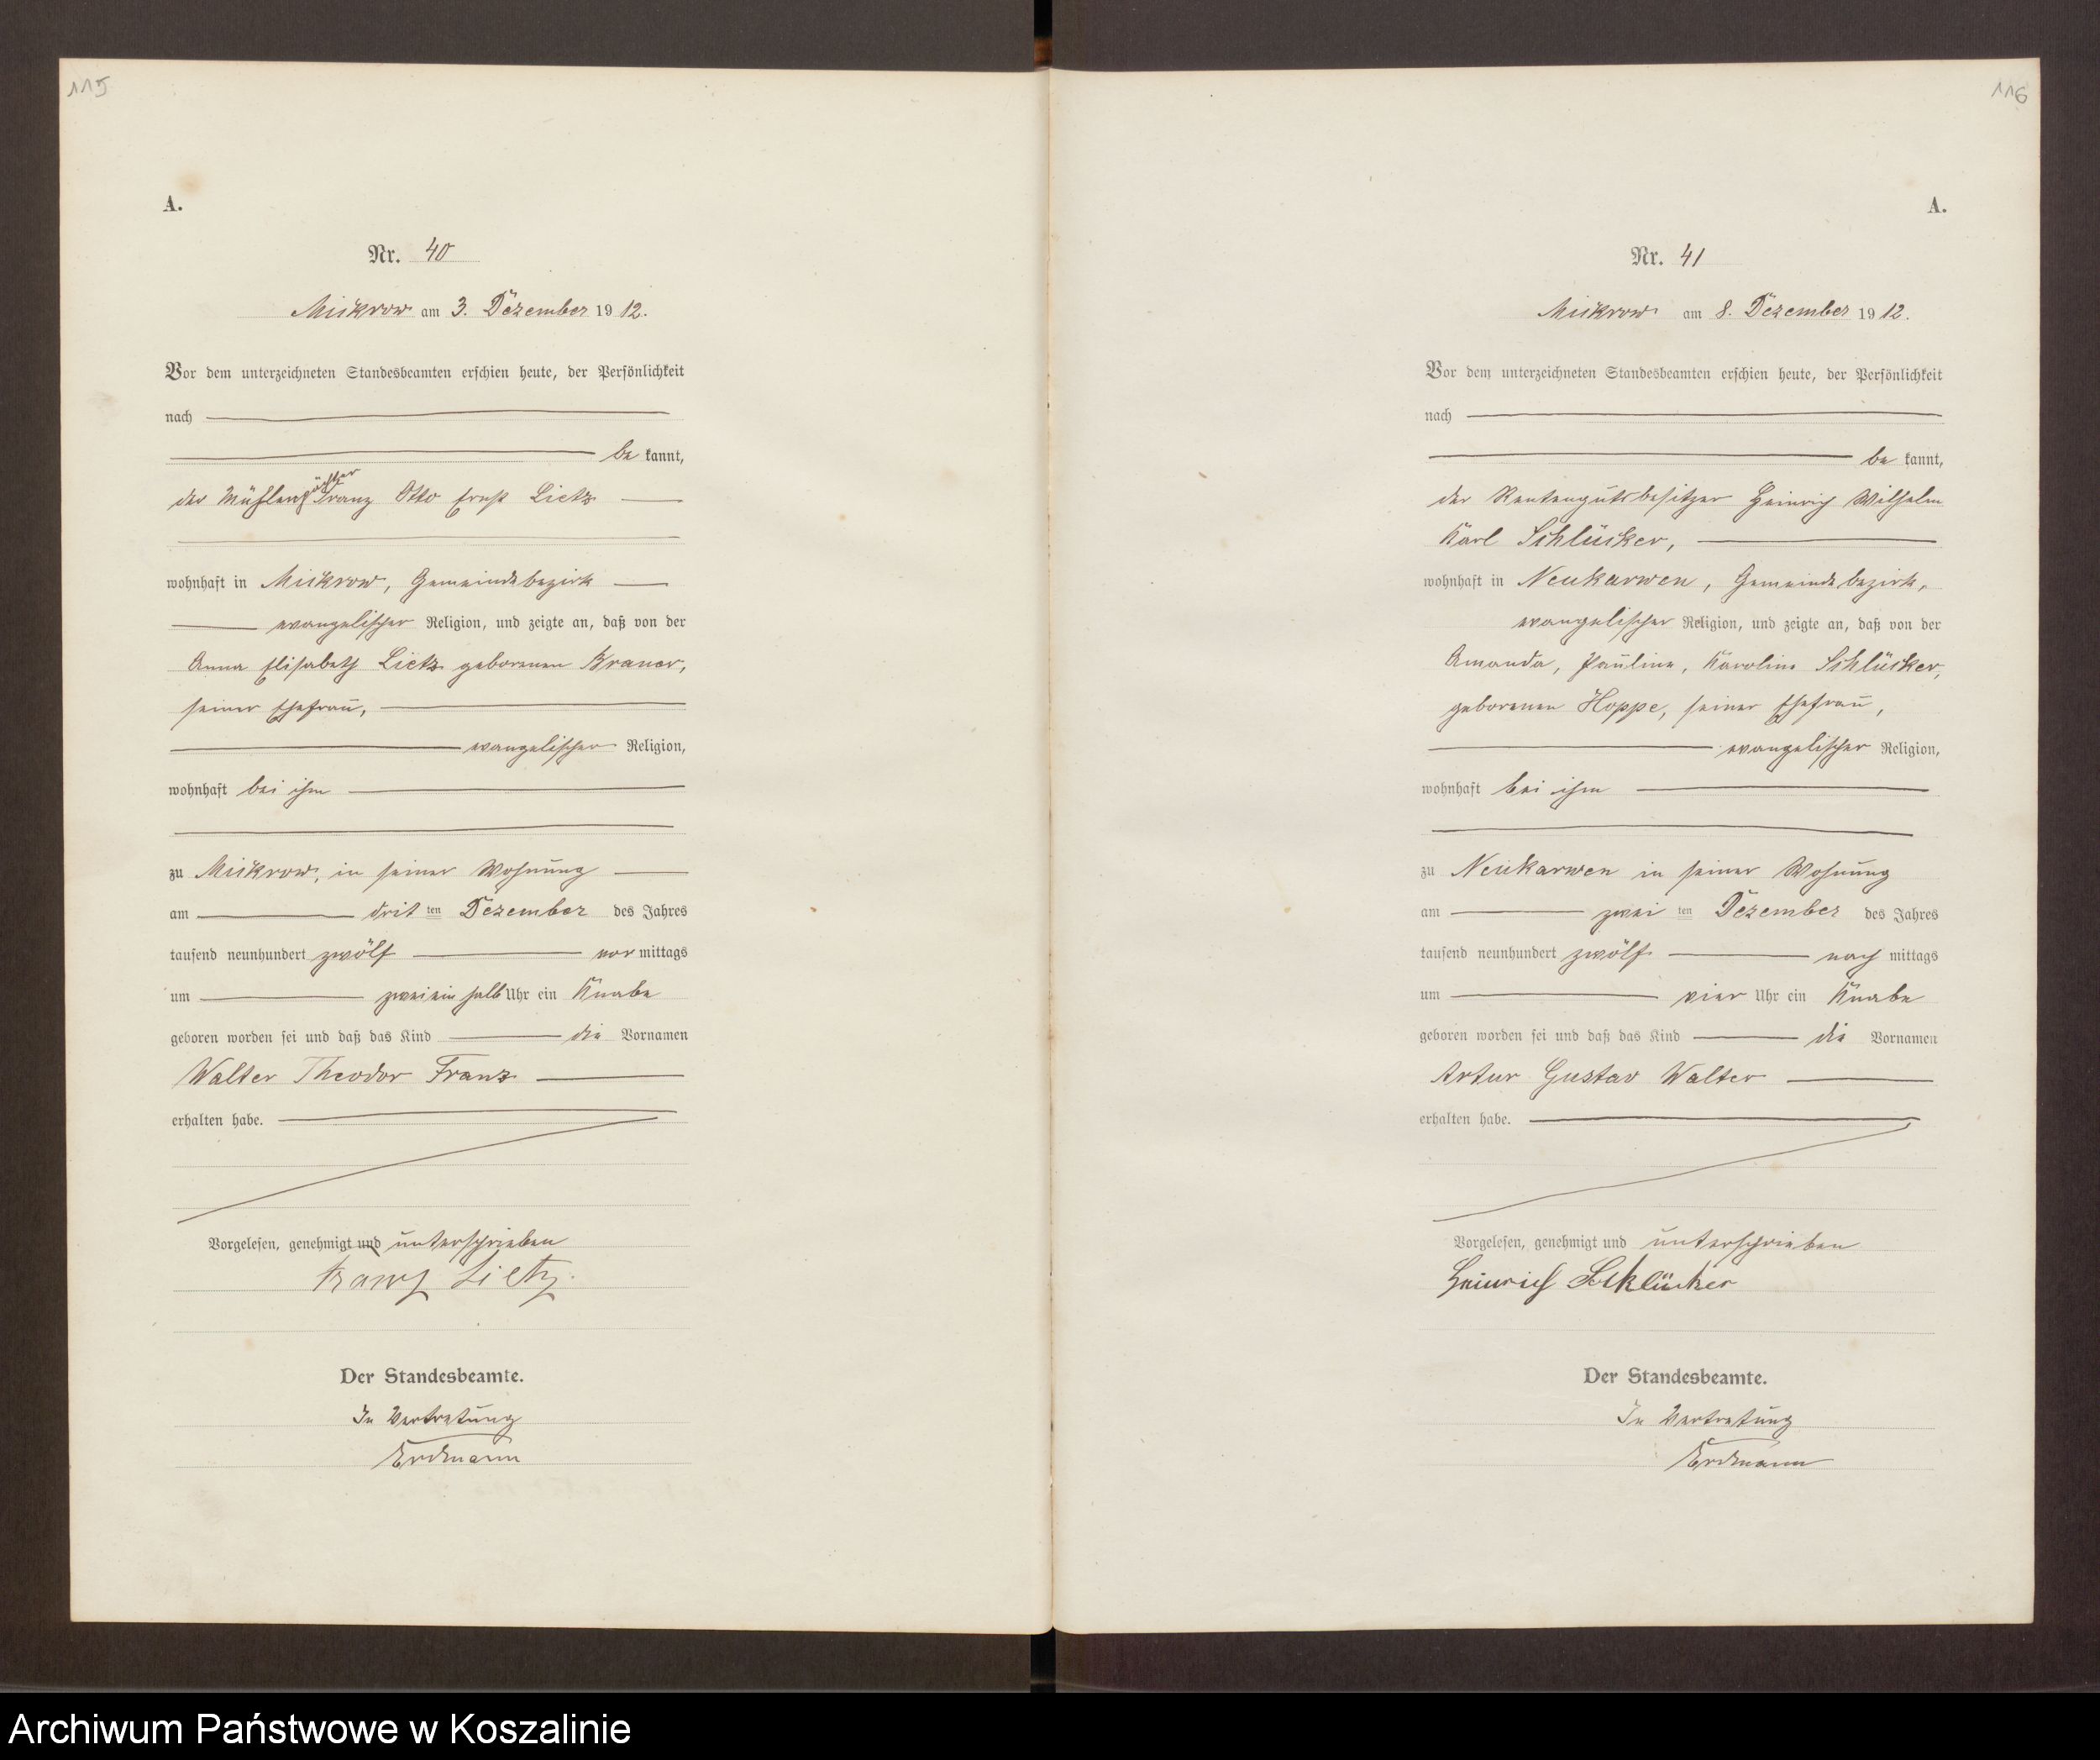 115
A.
Nr. 40
Mickrow am 3. Dezember 1912.
Vor dem unterzeichneten Standesbeamten erschien heute, der Persönlichkeit
nach
be kannt,
der Mühlenpächter Franz Otto Ernst Lietz
wohnhaft in Mickrow, Gemeindebezirk
evangelischer Religion, und zeigte an, daß von der
Anna Elisabeth Lietz geborenen Braner,
seiner Ehefrau,
evangelischer Religion,
wohnhaft bei ihm
zu Mickrow, in seiner Wohnung
am drit ten Dezember des Jahres
tausend neunhundert zwölf vor mittags
um zweieinhalb Uhr ein Knabe
geboren worden sei und daß das Kind die Vornamen
Walter Theodor Franz
erhalten habe.
Vorgelesen, genehmigt und unterschrieben
Franz Lietz.
Der Standesbeamte.
In Vertretung
Erdmann
116
A.
Nr. 41
Mickrow am 8. Dezember 1912.
Vor dem unterzeichneten Standesbeamten erschien heute, der Persönlichkeit
nach
be kannt,
der Rentengutsbesitzer Heinrich Wilhelm
Karl Schlücker,
wohnhaft in Neukarwen, Gemeindebezirk,
evangelischer Religion, und zeigte an, daß von der
Amanda, Pauline, Karoline Schlücker,
geborenen Hoppe, seiner Ehefrau,
evangelischer Religion,
wohnhaft bei ihm
zu Neukarwen in seiner Wohnung
am zwei ten Dezember des Jahres
tausend neunhundert zwölf nach mittags
um vier Uhr ein Knabe
geboren worden sei und daß das Kind die Vornamen
Artur Gustav Walter
erhalten habe.
Vorgelesen, genehmigt und unterschrieben
Heinrich Schlücker
Der Standesbeamte.
In Vertretung
Erdmann
Archiwum Państwowe w Koszalinie